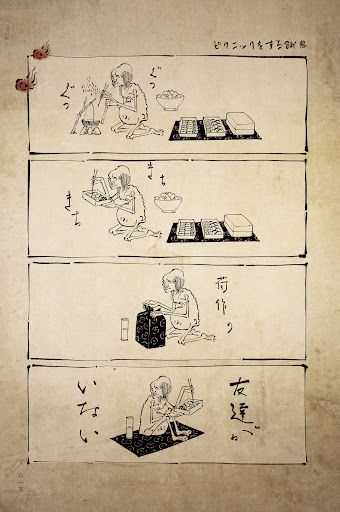 ピクニックをする餓鬼
ぐつ
ぐつ
きち
きち
荷作り
友達が
いない